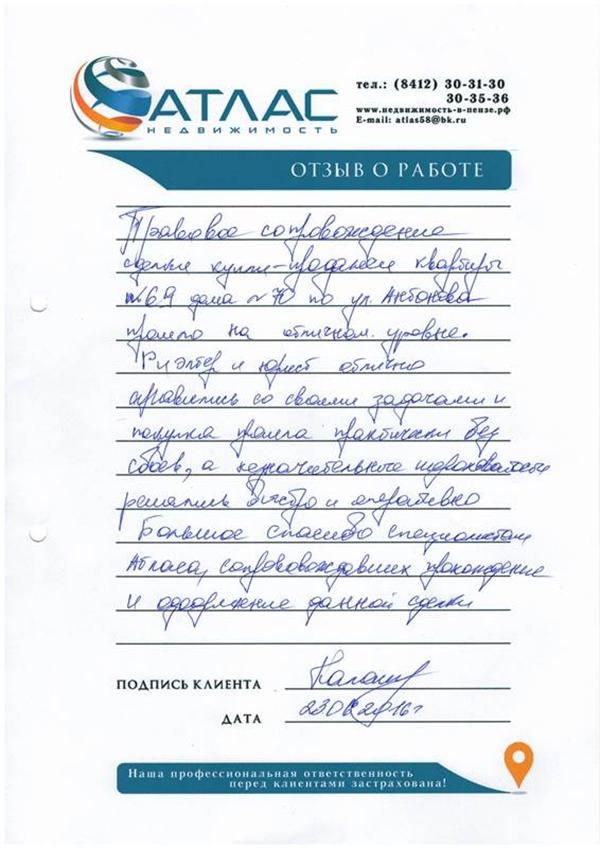 АТЛАС
НЕДВИЖИМОСТЬ
тел.: (8412) 30-31-30
30-35-36
www.недвижимость-в-пензе.рф
E-mail: atlas58@bk.ru
ОТЗЫВ О РАБОТЕ
Правовое сопровождение
сделки купли-продажи квартиры
№69 дома №70 по ул. Антонова
прошло на отличном уровне.
Риэлтер и юрист отлично
справились со своими задачами и
покупка прошла практически без
сбоев, а незначительные шероховатости
решались быстро и оперативно
Большое спасибо специалистам
Атласа, сопровождавших прохождение
и оформление данной сделки
ПОДПИСЬ КЛИЕНТА
ДАТА 2016г
Наша профессиональная ответственность
перед клиентами застрахована!